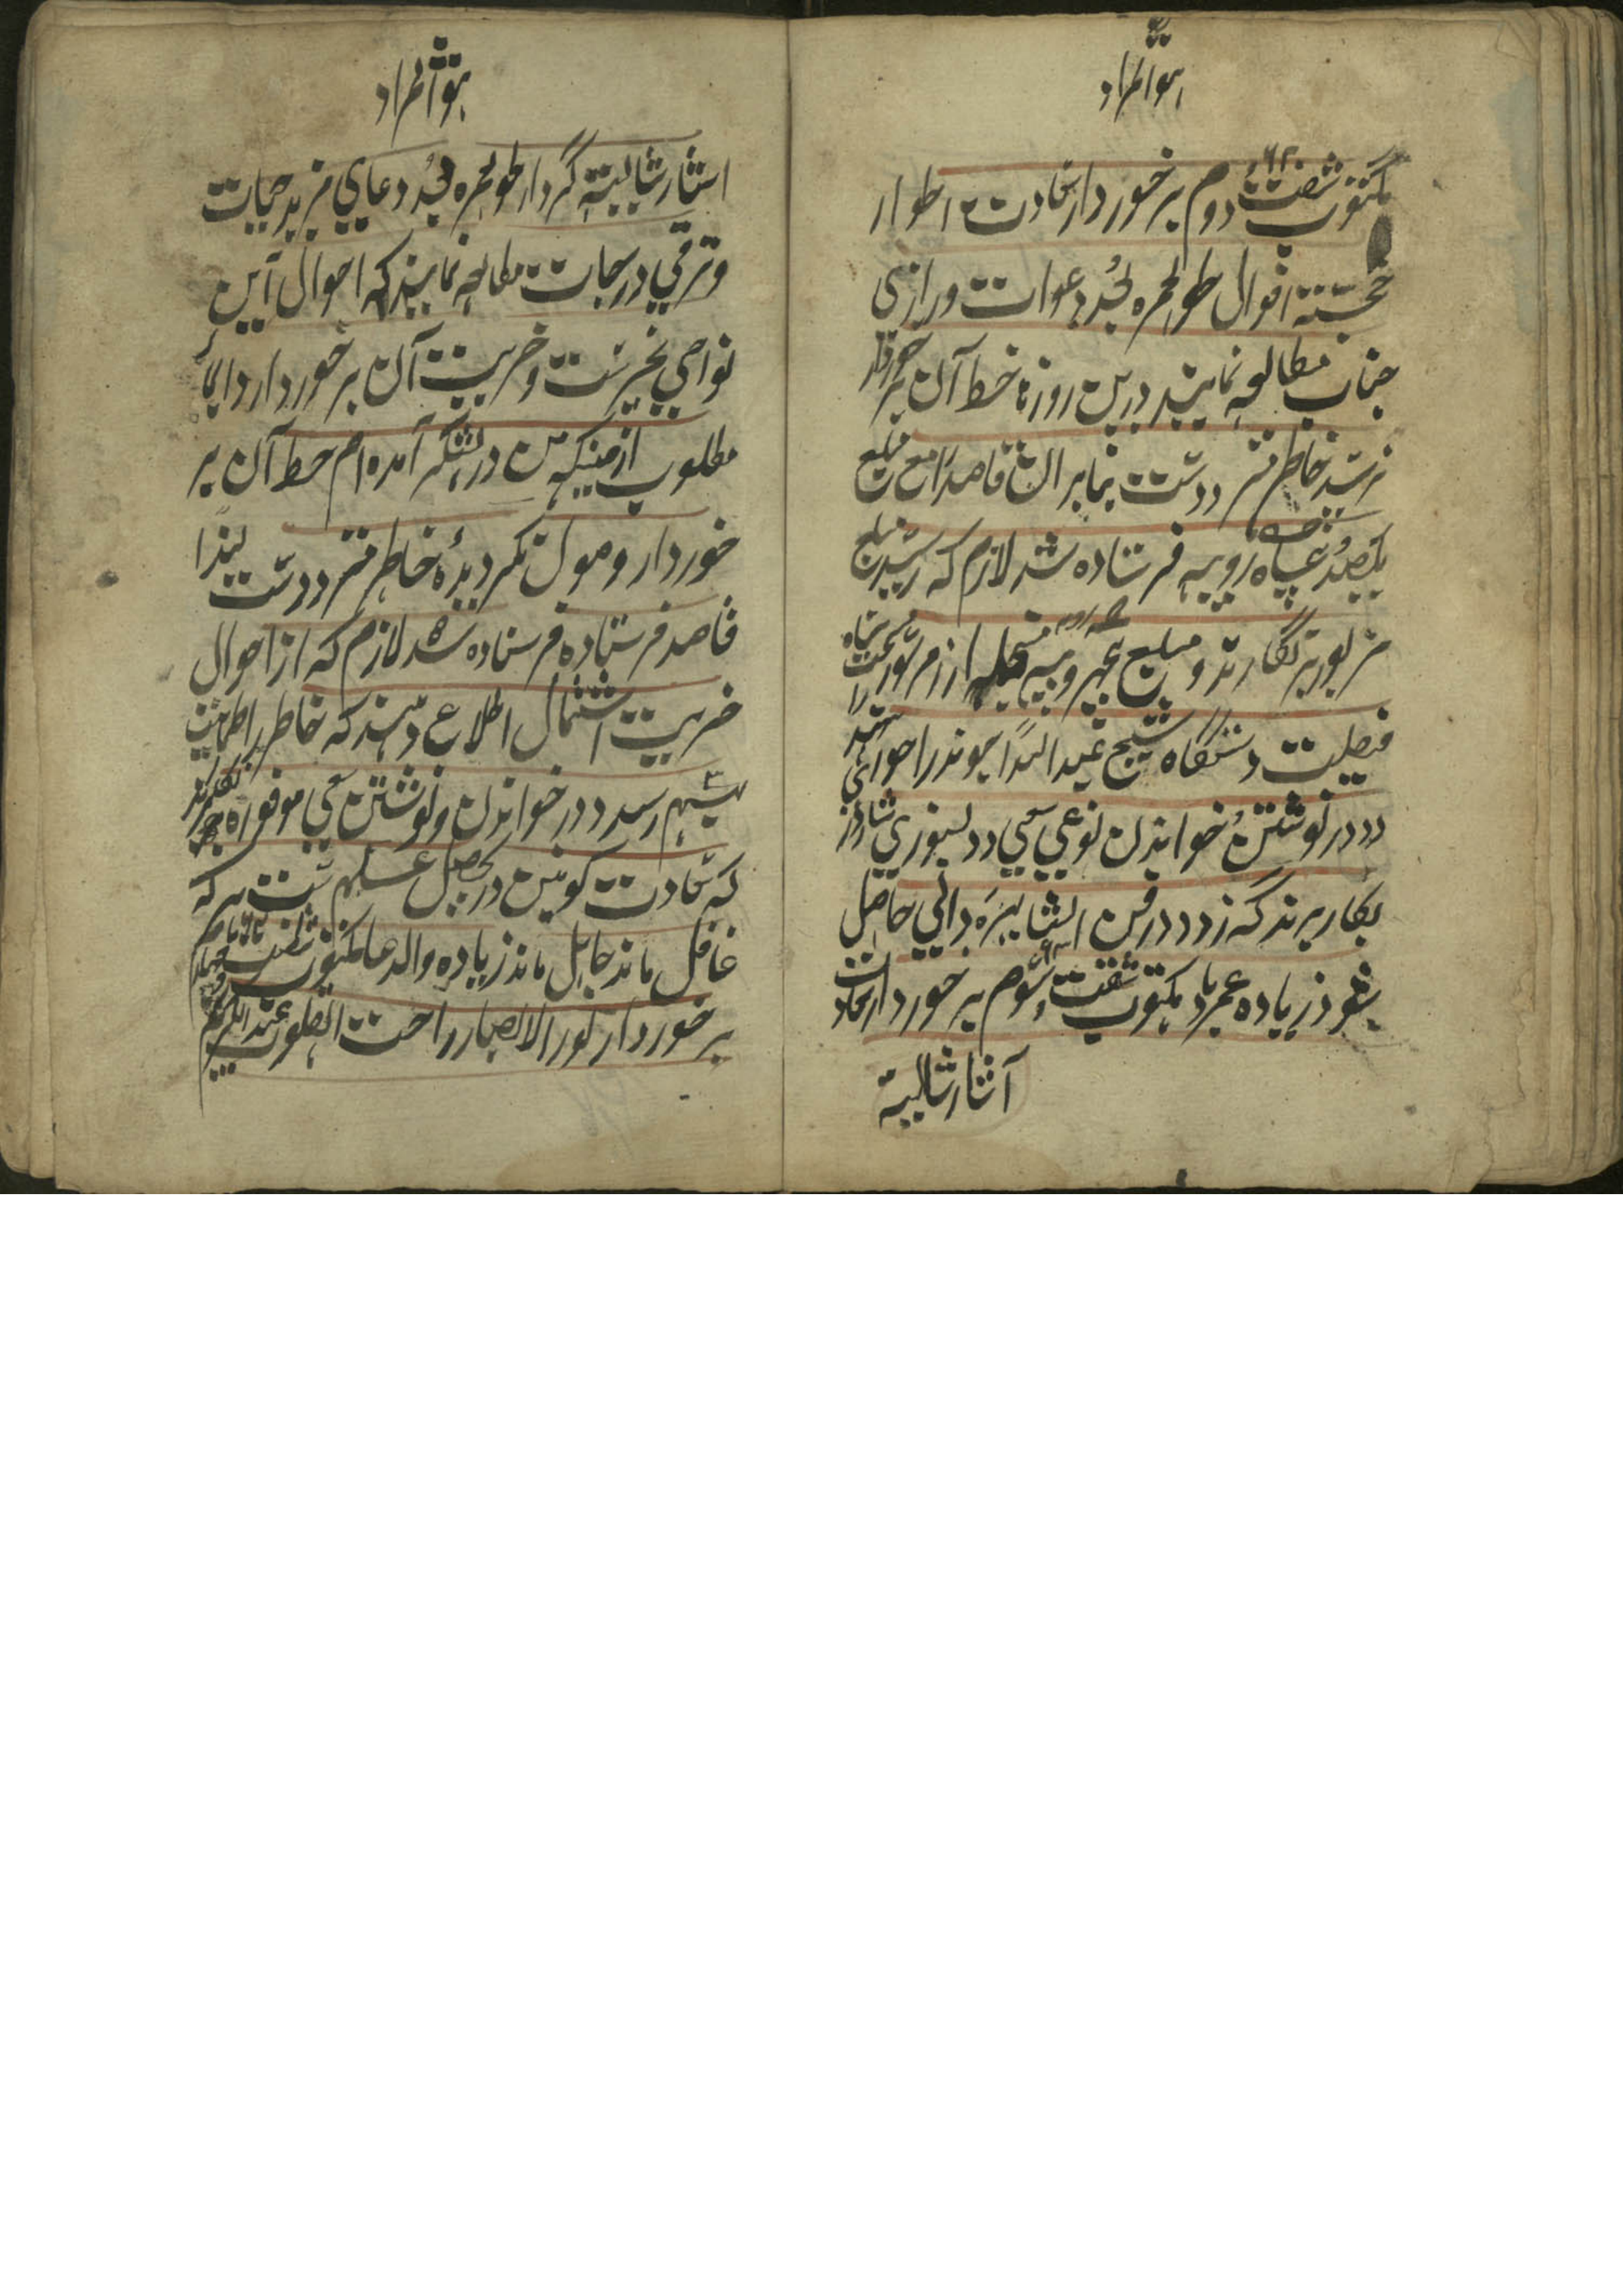 هو المراد
مکتوب شصت دوم برخوردار سعادت اطوار
خجسته اقوال طولعمره بعد دعوات درازی
حیات مطالعه نمایند درین روزها خط آن برخوردار
نرسید خاطر متردد است بنابران قاصد را مع مبلغ
یکصد پنجاه روپیه فرستاده شد لازم که رسید مبلغ
مزبور برنگارند و مبلغ پنج روپیه منجمله از زر مزبور
فضیلت دستگاه شیخ عبد الله جیوندرا حواله
در نوشتن و خواندن نوعی سعی و دلسوزی
بکار برند که زود در فن انشا بهره دانی حاصل
شود زیاده عمر باد مکتوب شصت و سوم برخوردار سعادت
آثار شایسته
هو المراد
اسثار شایسته کردار طولعمره بعد دعای مزید حیات
و ترقی درجات مطالعه نمایند که احوال این
نواحی بخیرست و خیریت آن برخوردار دایما
مطلوب از منیکه من در لشکر آمده ام خط آن بر
خوردار وصول نگردیده خاطر متردد است لهذا
قاصد فرستاده فرستاده شد لازم که از احوال
خیریت اشتمال اطلاع دهند که خاطر را طمانیت
بهم رسد و در خواندن و نوشتن سعی موفوره
که سعادت کونین در تحصیل علم ست هر که
غافل ماند جاهل ماند زیاده والدعا مکتوب شصت
برخوردار نور الابصار راحت القلوب عبد الکریم